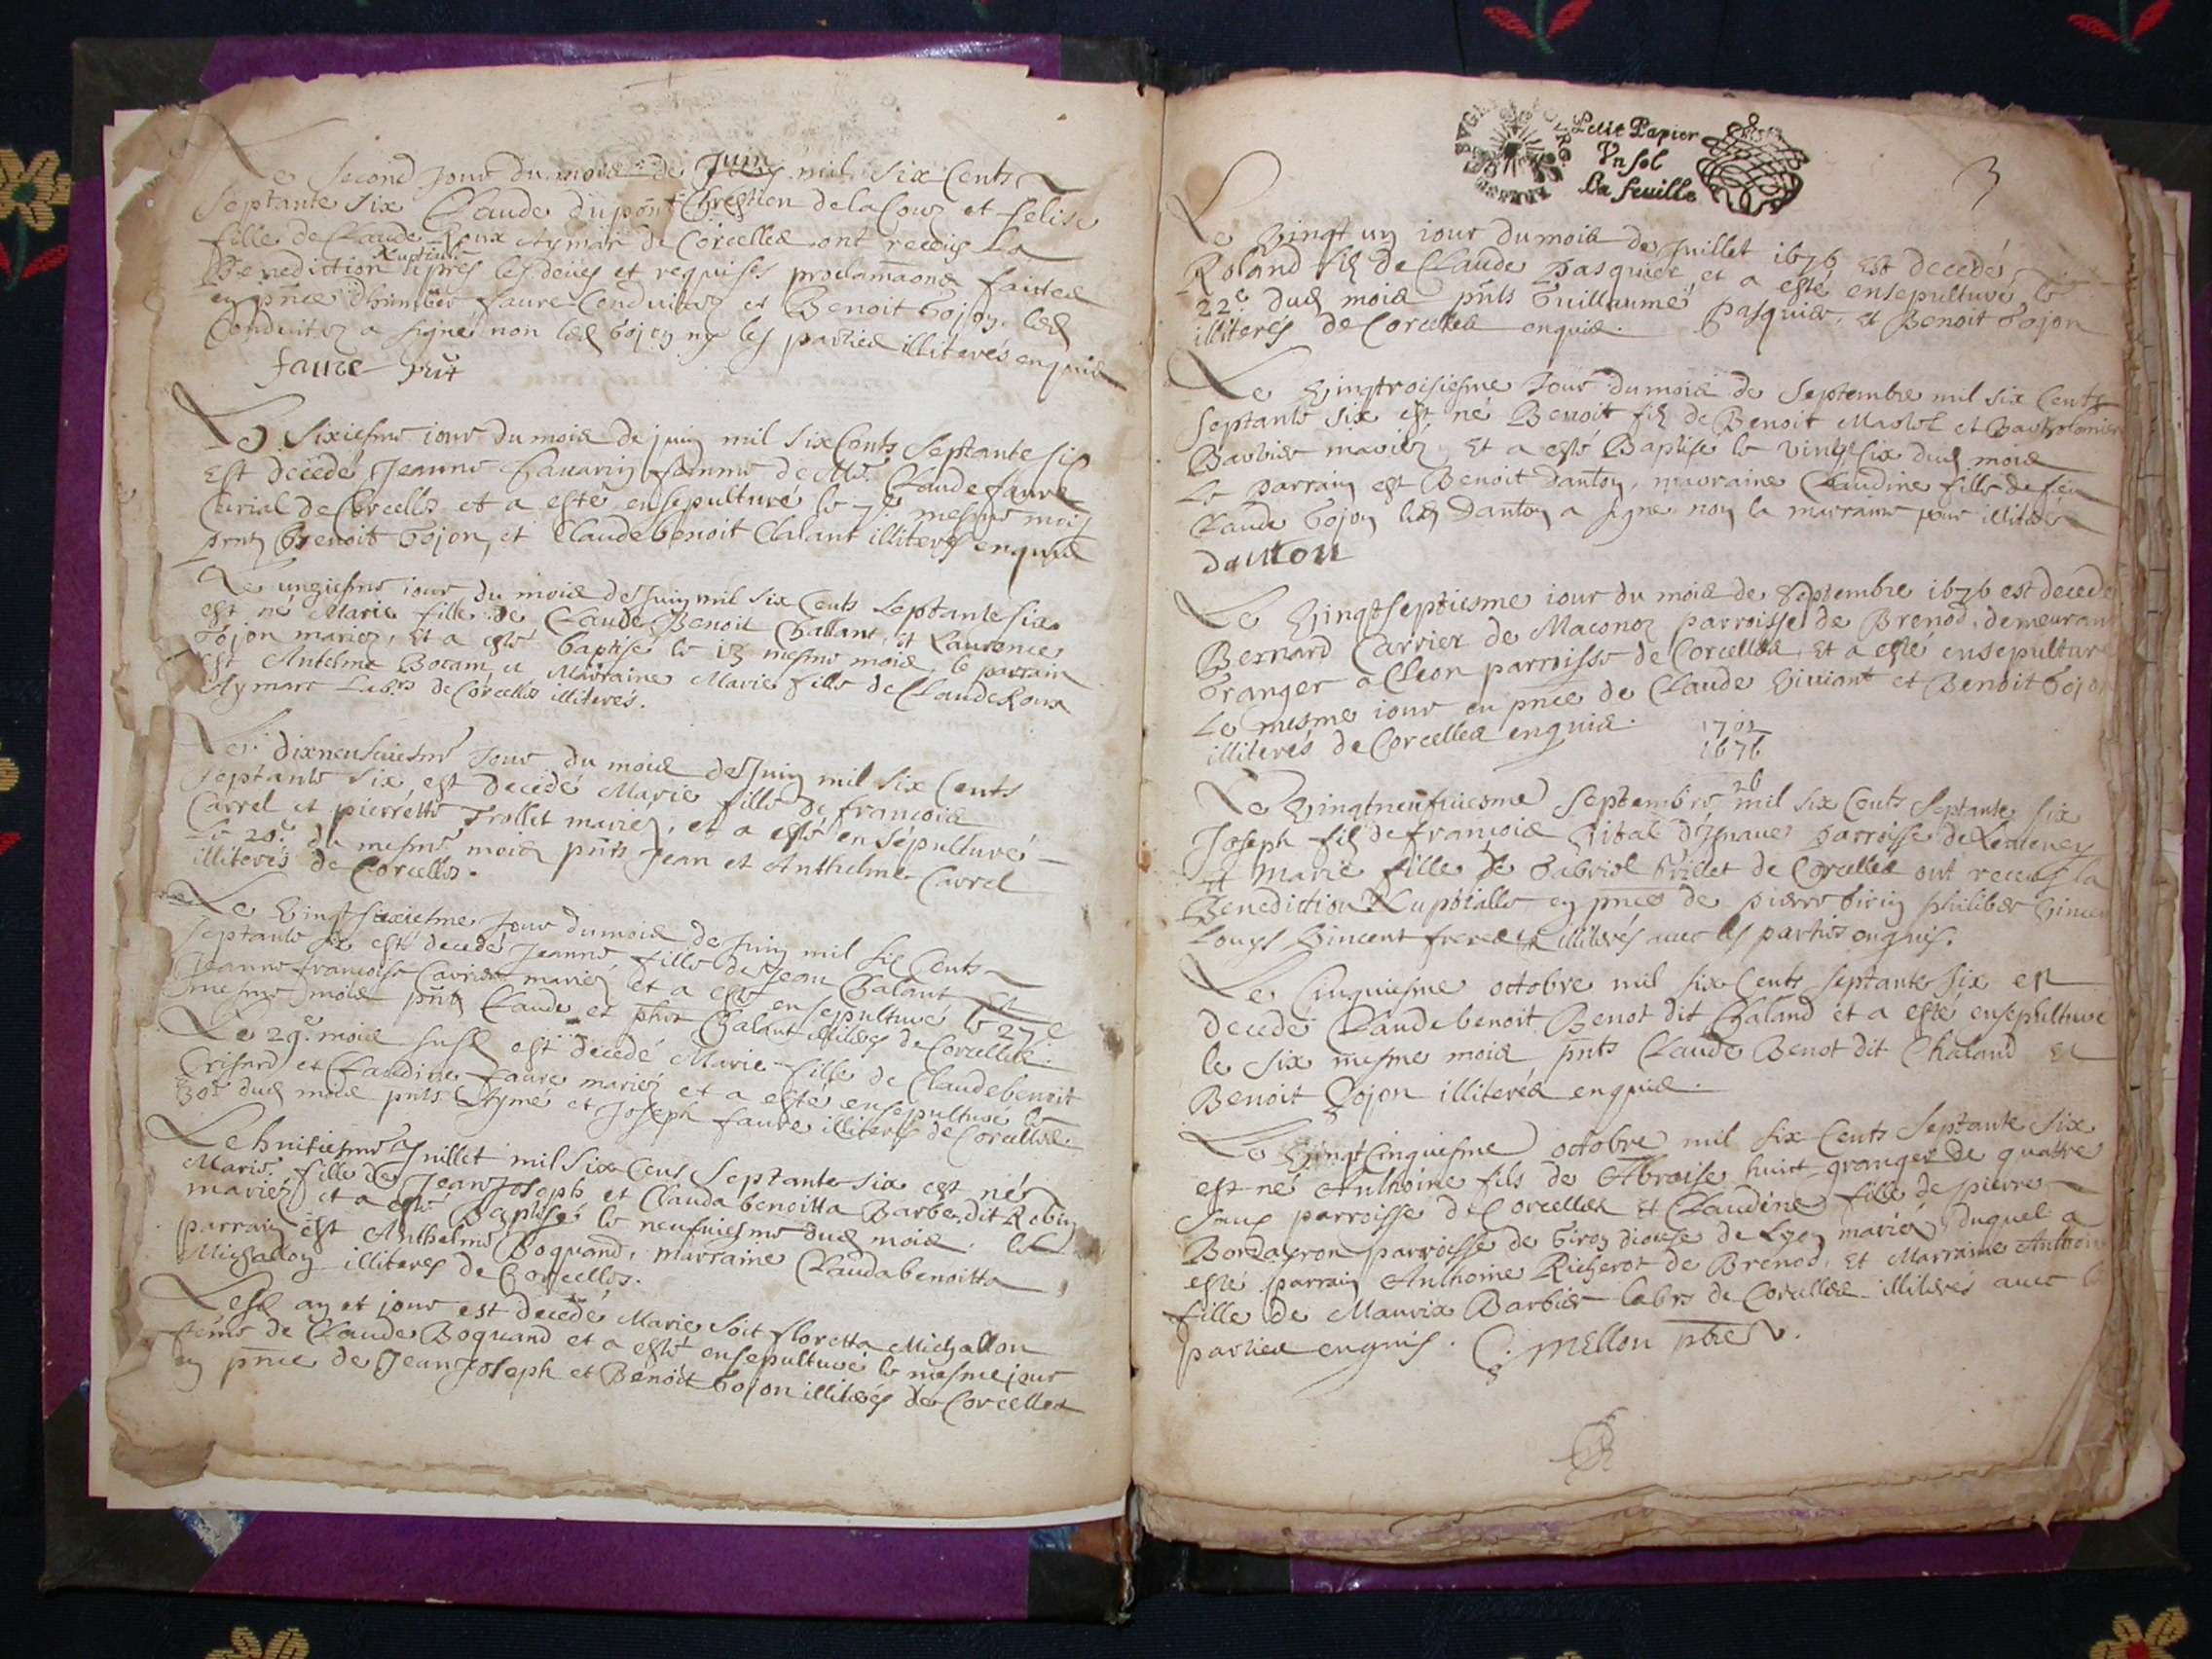 Le second jour du mois de Juin mil six Cents
septante six Claude dupont Chrestien de la Cour et felise
fille de Claude Roux Aymar de Corcelles ont receus la
Benediction Nuptiale apres les deües et requises proclamaons faites
en pnce dhumber faure Conduitor et Benoit Gojon. led
Conduitor a signé non led Gojon ny les parties illiterés enquis
faure
Le sixiesme iour du mois de juin mil six Cents septante six
Est decedé Jeanne Chavarin femme de Me Claude faure
Curial de Corcelles et a esté ensepulturé le 7e mesme mois
pnts Benoit Gojon, et Claude benoit Chalant illiterés enquis
Le ungiesme iour du mois de Juin mil six Cents septante six
est né Marie fille de Claude Benoit Challant, et Laurence
Gojon mariez, Et a esté baptisé le 13 mesme mois, le parrain
est Antelme Bocam, et Marraine Marie fille de Claude Roux
Aymart Labrs de Corcelles illiterés.
Le dixneufuiesme Jour du mois de Juin mil six Cents
septante six est decedé Marie fille de francois
Carrel et pierrette Trollet mariez, et a esté ensepulturé
le 20e du mesme mois pnts Jean et Anthelme Carrel
illiterés de Corcelles.
Le Vingt sixiesme Jour du mois de Juin mil six Cents
septante six est decedé Jeanne fille de Jean Chalant et
Jeanne francoise Carrier mariez et a esté ensepulturé le 27e
mesme mois pnts Claude et phir Chalant illiterés de Corcelles.
Le 29e mois susd est decedé Marie fille de Claude benoit
Crisard et Claudine faure mariez et a esté ensepulturé le
30e dud mois pnts Aymé et Joseph faure illiterés de Corcelles
Le huitiesme Juillet mil six Cens septante six est né
Marie fille de Jean Joseph et Clauda benoitta Barbe, dit Robin
mariez et a esté Baptisé le neufuiesme dud mois. le
parrain est Anthelme Boquand, marraine Clauda benoitta
Michallon illiteres de Corcelles.
Lesd an et jour est decedé Marie soit floretta Michallon
feme de Claude Boquand et a esté ensepulturé le mesme jour
en pnce de Jean Joseph et Benoit Gojon illiterés de Corcelles
Petit Papier
Vn sol
La feuille
3
Le Vingt un iour du mois de Juillet 1676 Est decedé
Roland fil de Claude Pasquier et a esté ensepulturé le
22e dud mois pnts Guillaume Pasquier, et Benoit Gojon
illiterés de Corcelles enquis.
Le Vingtroisiesme Jour du mois de Septembre mil six Cents
septante six est né Benoit fil de Benoit Maslot et Bartholomiere
Barbier mariez, Et a esté Baptisé le vingt six dud mois
Le parrain est Benoit Danton, marraine Claudine fille de feu
Claude Gojon led Danton a signe non la marraine pour illiterée
danton
Le Vingtseptiesme iour du mois de Septembre 1676 est decedé
Bernard Carrier de Maconoz parroisse de Brenod, demeurant
Granger a Cleon parroisse de Corcelles, Et a esté ensepulturé
Le mesme iour en pnce de Claude Viviant et Benoit Gojon
illiterés de Corcelles enquis.
1702
1676
26
Le Vingtneufuiesme Septembre mil six Cents Septante six
Joseph fil de francois Vital
et Marie fille de Gabriel Brillet de Corcelles ont receus la
Benediction Nuptialle en pnce de pierre Girin philiber Vincent
Louys Vincent freres illiterés avec les parties enquis.
Le Cinquiesme octobre mil six Cents septante six est
decedé Claude benoit Benot dit Chaland et a esté ensepulturé
le six mesme mois pnts Claude Benot dit Chaland et
Benoit Gojon illiterés enquis.
Le Vingt Cinquiesme octobre mil six Cents septante six
est né Anthoine fils de Abroise huict granger de quatre
parroisse de Corcelles et Claudine fille de pierre
parroisse de Giron diocese de Lyon mariez, duquel a
esté parrain Anthoine Richerot de Brenod, Et Marraine Anthoine
fille de Mauris Barbier labrs de Corcelles illiterés avec
parties enquis. C. Mellon pbre V.